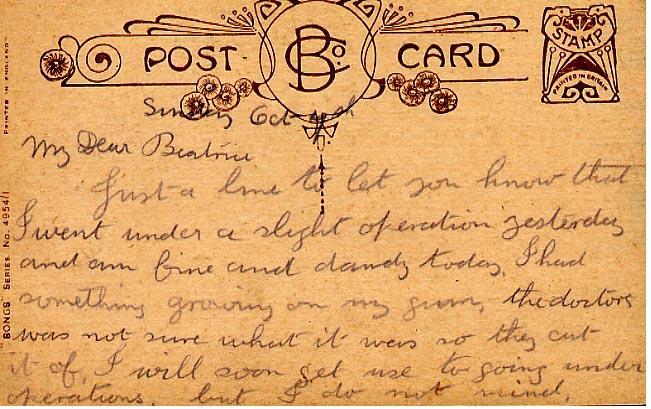 POST CARD
B Co.
STAMP
PRINTED IN BRITAIN
PRINTED IN ENGLAND
"SONGS" SERIES No. 4954/1
Sunday Oct 4th
My Dear Beatrice
Just a line to let you know that
I went under a slight operation yesterday
and am fine and dandy today, I had
something growing on my gum, the doctors
was not sure what it was so they cut
it of, I will soon get use to going under
operations, but I do not mind.